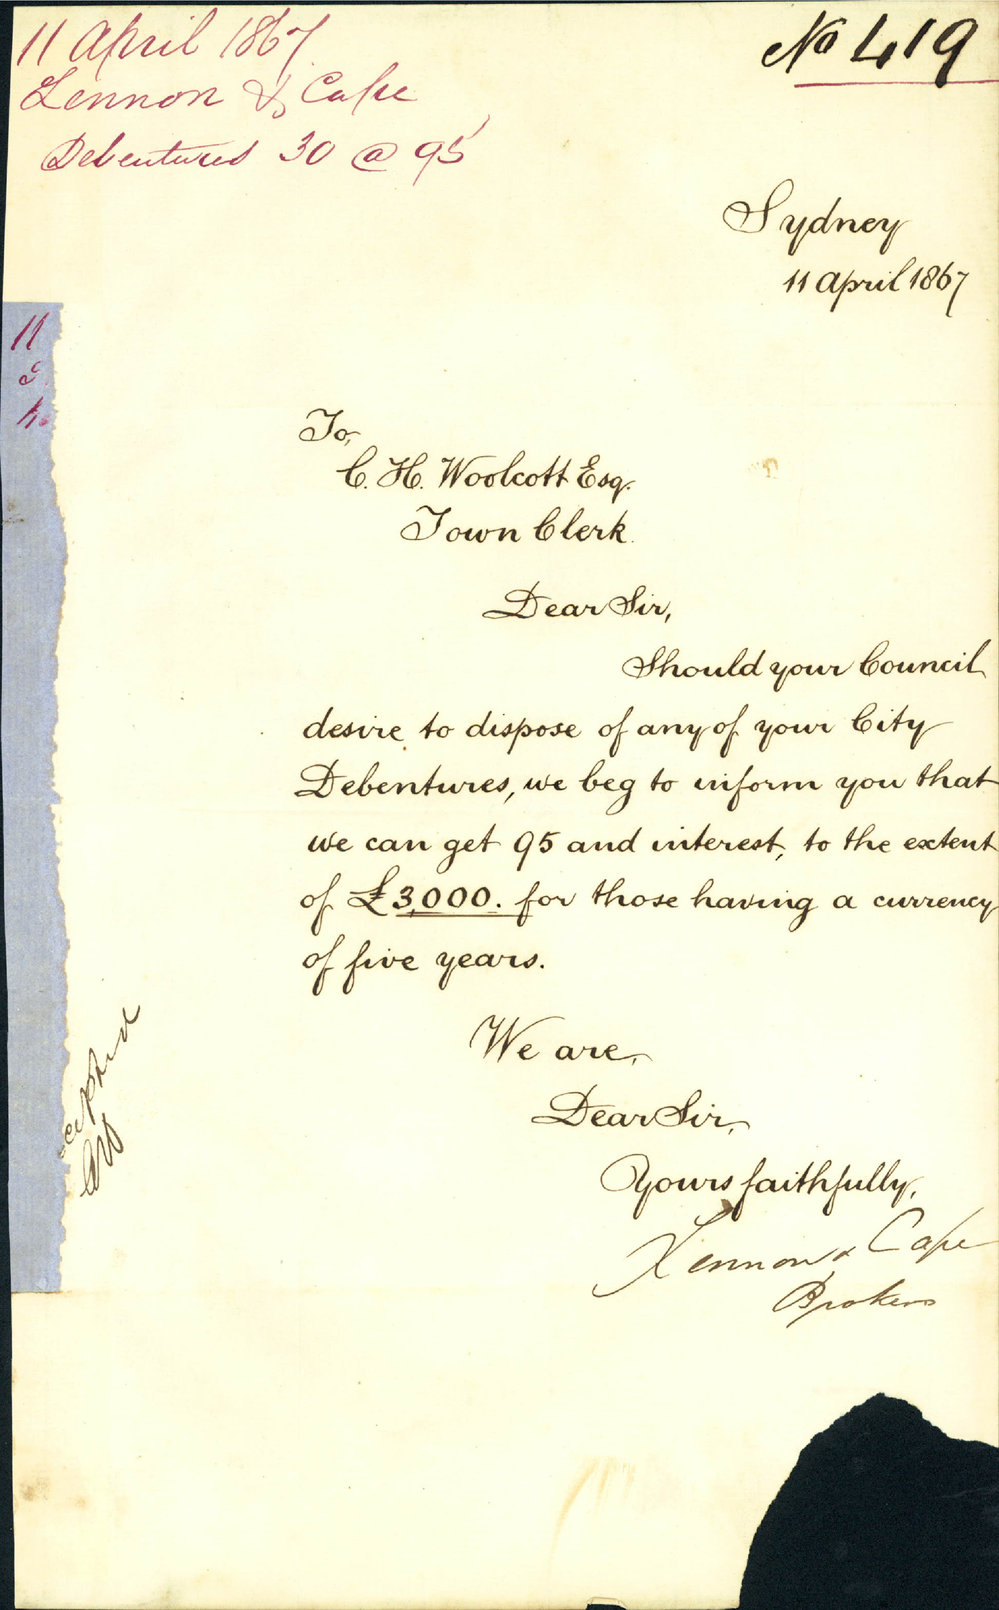 11 April 1867
Lennon & Cape
Debentures 30 @ 95
No 419
Sydney
11 April 1867
11
To,
C. H. Woolcott Esq.
Town Clerk.
Dear Sir,
Should your Council
desire to dispose of any of your City
Debentures, we beg to inform you that
we can get 95 and interest, to the extent
of £3,000. for those having a currency
of five years.
We are,
Dear Sir,
Yours faithfully,
Lennon & Cape
Brokers